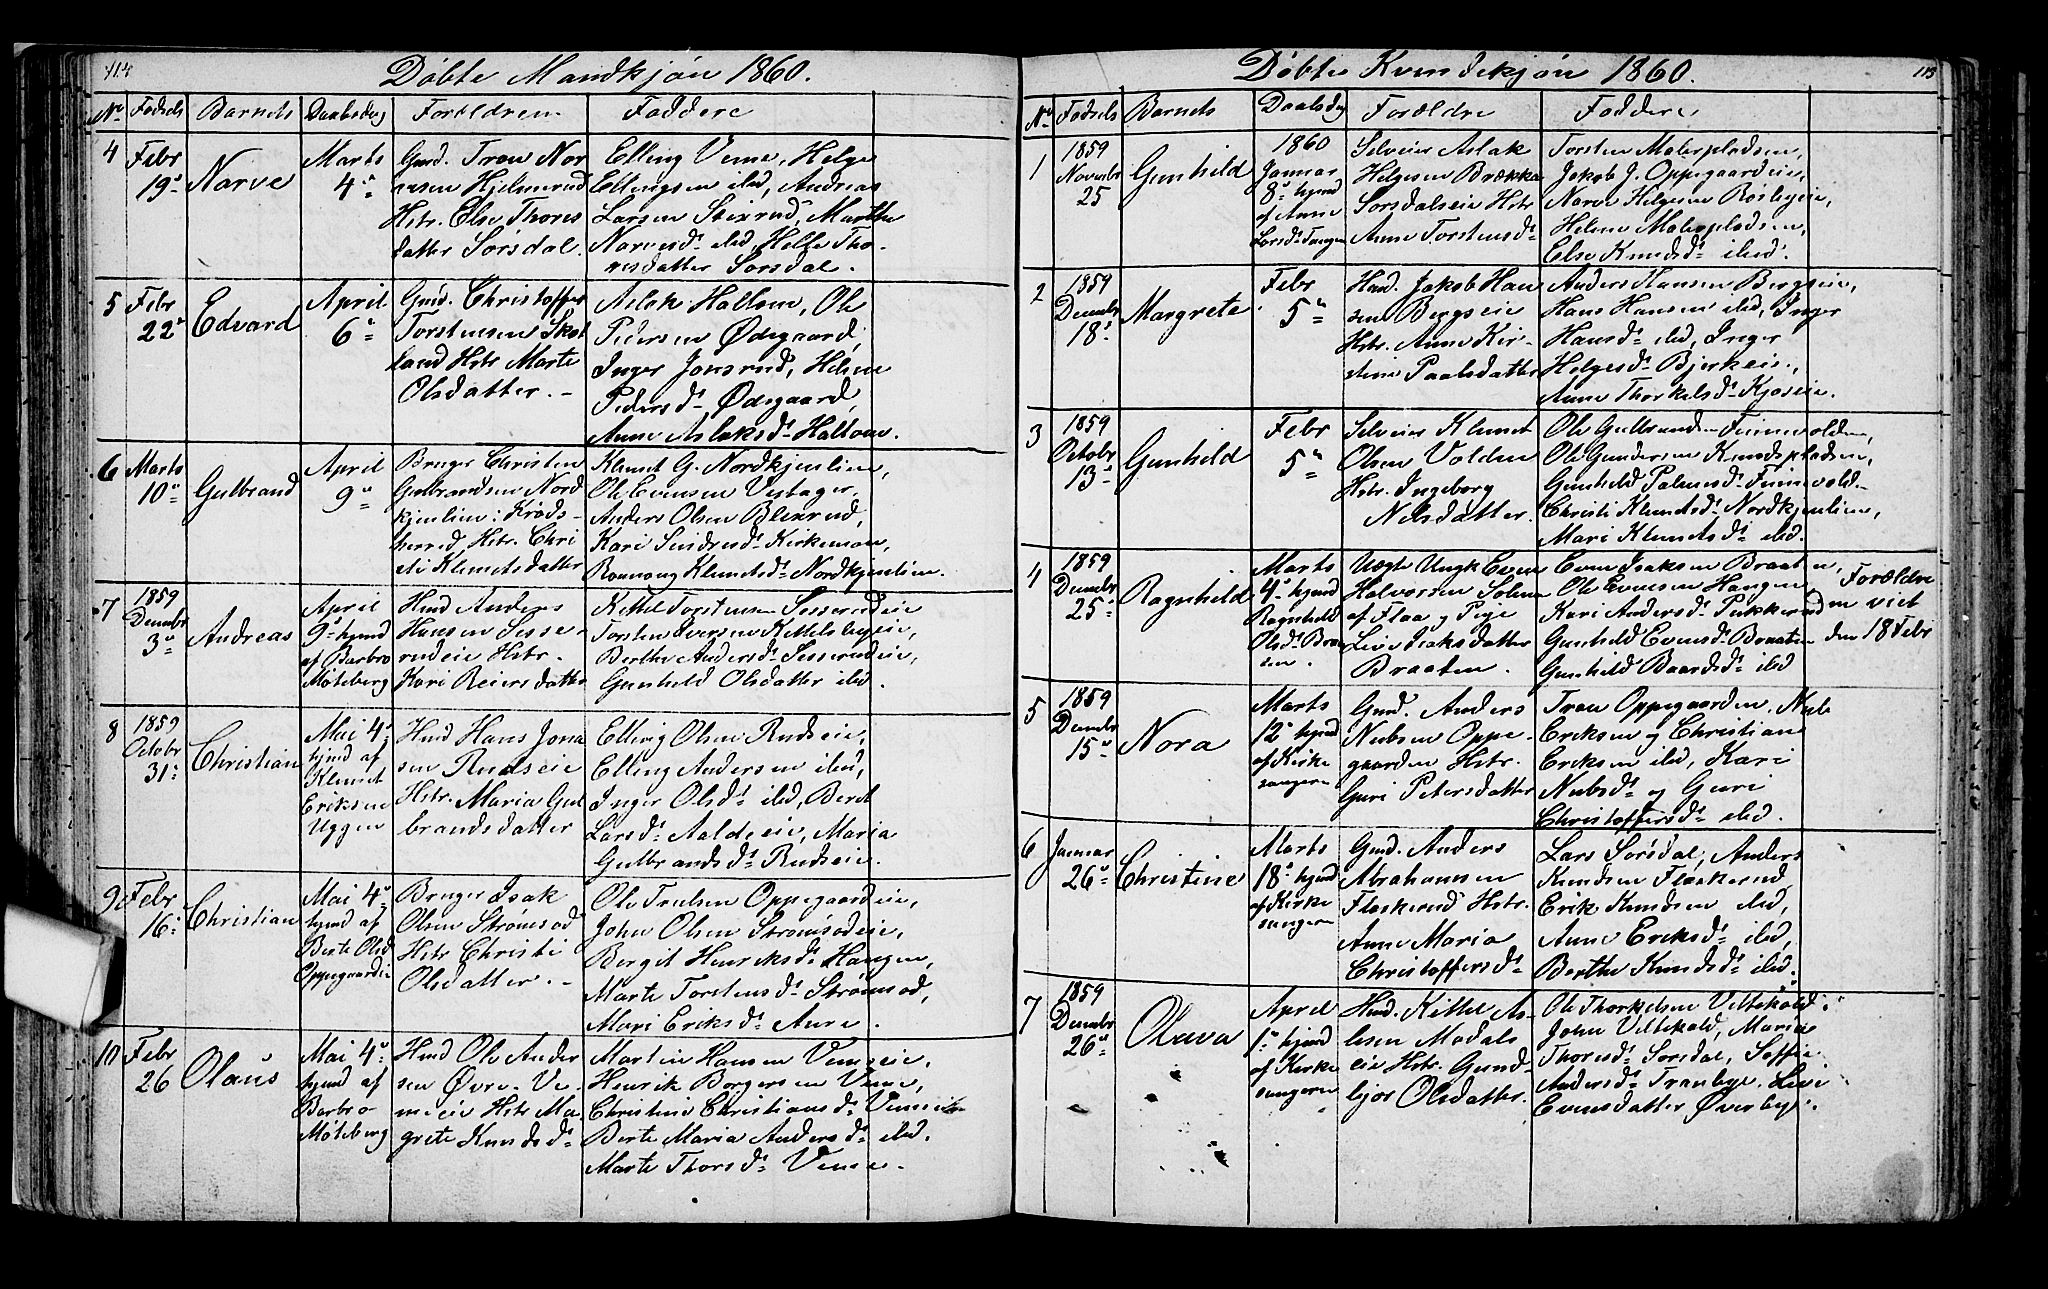 114
Döbte Mandkjön 1860.
No Fødsels Barnets Daabsdag Forældrene Faddere
4
Febr
19de
Narve
Marts
4de
Gmd. Tron Nar
vesen Hjelmerud
Hstr. Else Thores
datter Sorsdal.
Elling Veme, Helge
Ellingsen ibid, Andreas
Larsen Stixrud, Marthe
Narvesdr ibid, Helle Tho-
resdatter Sorsdal.
5
Febr
22de
Edvard
April
6te
Gmd. Christoffer
Torstensen Skot
land Hstr Marte
Olsdatter. -
Aslak Hallom, Ole
Pedersen Ødegaard,
Inger Jonsrud, Helene
Pedersdr Ødegaard,
Anne Aslaksdr Hallom.
6
Marts
10de
Gulbrand
April
9de
Bruger Christen
Gulbrandsen Nord
kjenlien i Kröds-
herred, Hstr. Chri
sti Klemetsdatter
Klemet G. Nordkjenlien,
Ole Evensen Vestager,
Anders Olsen Blexrud,
Kari Sindresdr Kirkemoen,
Ronnaug Klemetsdr Nordkjenlien.
7
1859
Decembr
3de
Andreas
April
9de hjemd
af Barbro
Möteberg
Hmd Anders
Hansen Sesse-
rudeie Hstr.
Kari Reiersdatter
Kittel Torstensen Sesserudeie
Torsten Iversen Kittelsbyeie,
Berthe Andersdr Sesserudeie,
Gunhild Olsdatter ibid.
8
1859
Octobr
31te
Christian
Mai 4de
hjemd af
Klemet
Eriksen
Uggen
Hmd Hans Jona
sen Rudseie
Hstr. Maria Gul
brandsdatter
Elling Olsen Rudseie,
Elling Andersen ibid,
Inger Olsdr ibid, Beret
Larsdr Aaldseie, Maria
Gulbrandsdr Rudseie.
9
Febr
16de
Christian
Mai 4de
hjemd af
Berte Olsd
Oppegaardeie
Bruger Isak
Olsen Strömsod
Hstr Christi
Olsdatter. -
Ole Truelsen Oppegaardeie,
John Olsen Strömsodeie,
Bergit Henriksdr Haugen,
Marte Torstensdr Strömsod,
Mari Eriksdr Aure.
10
Febr
26
Olaus
Mai 4de
hjemd af
Barbro
Möteberg
Hmd Ole Ander
sen Øvre-Ve-
meeie Hstr Ma
grete Knudsdr
Martin Hansen Vemeeie,
Henrik Borgersen Veme,
Christine Christiansdr Vemeeie
Berte Maria Andersdr ibid.
Marte Thorsdr Veme.
115
Döbte Kvindekjön 1860.
No Fødsels Barnets Daabsdag Forældre Faddere
1
1859
Novembr
25
Gunhild
1860
Januar
8de hjemd
af Anne
Larsdr Tangen
Selveier Aslak
Helgesen Brække
Sorsdalseie Hstr
Anne Torstensdr
Torsten Malerpladsen,
Jakob J. Oppegaardeie,
Narve Helgesen Rosbyeie,
Helene Malerpladsen,
Else Knudsdr ibid.
2
1859
Decembr
18de
Margrete
Febr
5te
Hmd. Jakob Han
sen Bergseie
Hstr. Anne Kir-
stine Paalsdatter
Anders Hansen Bergseie,
Hans Hansen ibid, Inger
Hansdr ibid, Inger
Helgesdr Bjerkeie,
Anne Thorkelsdr Kjoseie.
3
1859
Octobr
13de
Gunhild
Febr
5te
Selveier Klemet
Olsen Volden
Hstr. Ingeborg
Nilsdatter.
Ole Gulbrandsen Finnevolden,
Ole Gundersen Knudspladsen,
Gunhild Palmesdr Finnevold.
Christi Klemetsdr Nordkjenlien,
Mari Klemetsdr ibid.
4
1859
Decembr
25de
Ragnhild
Marts
4de hjemd
Ragnhild
Olsdr Braa
sen.
Uægte Ungk Even
Halvorsen Solem
af Flaa og Pige
Live Isaksdatter
Braaten.
Even Isaksen Braaten,
Ole Evensen Haugen
Kari Andersdr Pukkerud
Gunhild Evensdr Braaten
Gunhild Baardsdr ibid
Forældre
ne viet
den 18 Febr
5
1859
Decembr
15de
Nora
Marts
12te hjemd
af Kirke
sangeren
Gmd. Anders
Nielsen Oppe-
gaarden Hstr.
Guri Petersdatter
Tron Oppegaarden, Niels
Eriksen og Christian
Eriksen ibid, Kari
Nielsdr og Guri
Christoffersdr ibid.
6
Januar
26de
Christine
Marts
18de hjemd
af Kirke
sangeren
Gmd. Anders
Abrahamsen
Flaskerud Hstr.
Anne Maria
Christoffersdr
Lars Sorsdal, Anders
Knudsen Flaskerud
Erik Knudsen ibid,
Anne Eriksdr ibid,
Berthe Knudsdr ibid.
7
1859
Decembr
26de
Olava
April
1te hjemd
af Kirke
sangeren
Hmd. Kittel As-
lesen Modals
eie Hstr. Gund-
bjor Olsdatter.
Ole Thorkelsen Veltskold,
John Veltskold, Maria
Thoresdr Sorsdal, Soffie
Andersdr Tranbye, Live
Evensdatter Øverbye.